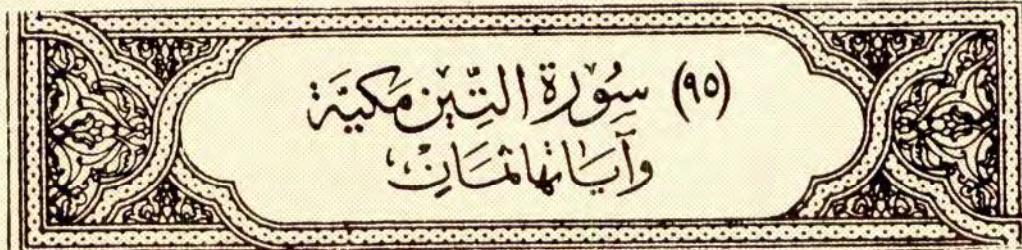 (٩٥) سُورَة التِّين مَكيَّة
وَآيَاتها ثمَانِ